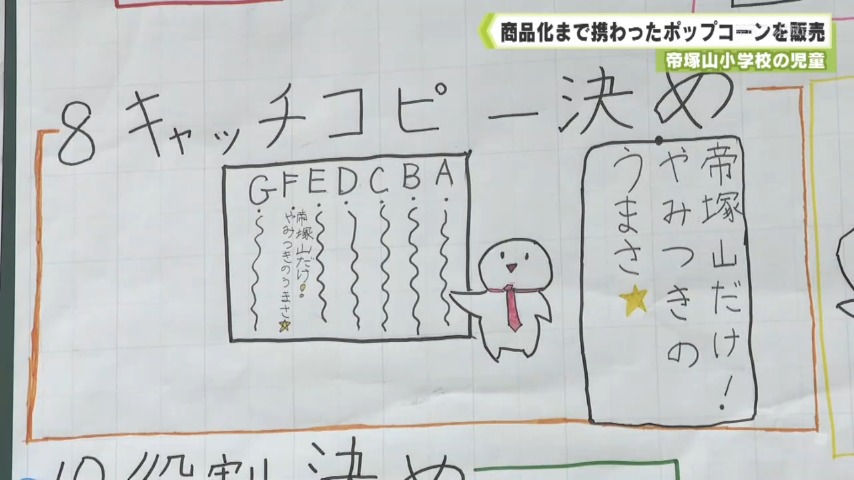 商品化まで携わったポップコーンを販売
帝塚山小学校の児童
8 キャッチコピー決め
A
B
C
D
E
F
G
帝塚山だけ!!
やみつきのうまさ☆
帝塚山だけ!
やみつきの
うまさ★
10 役割決め